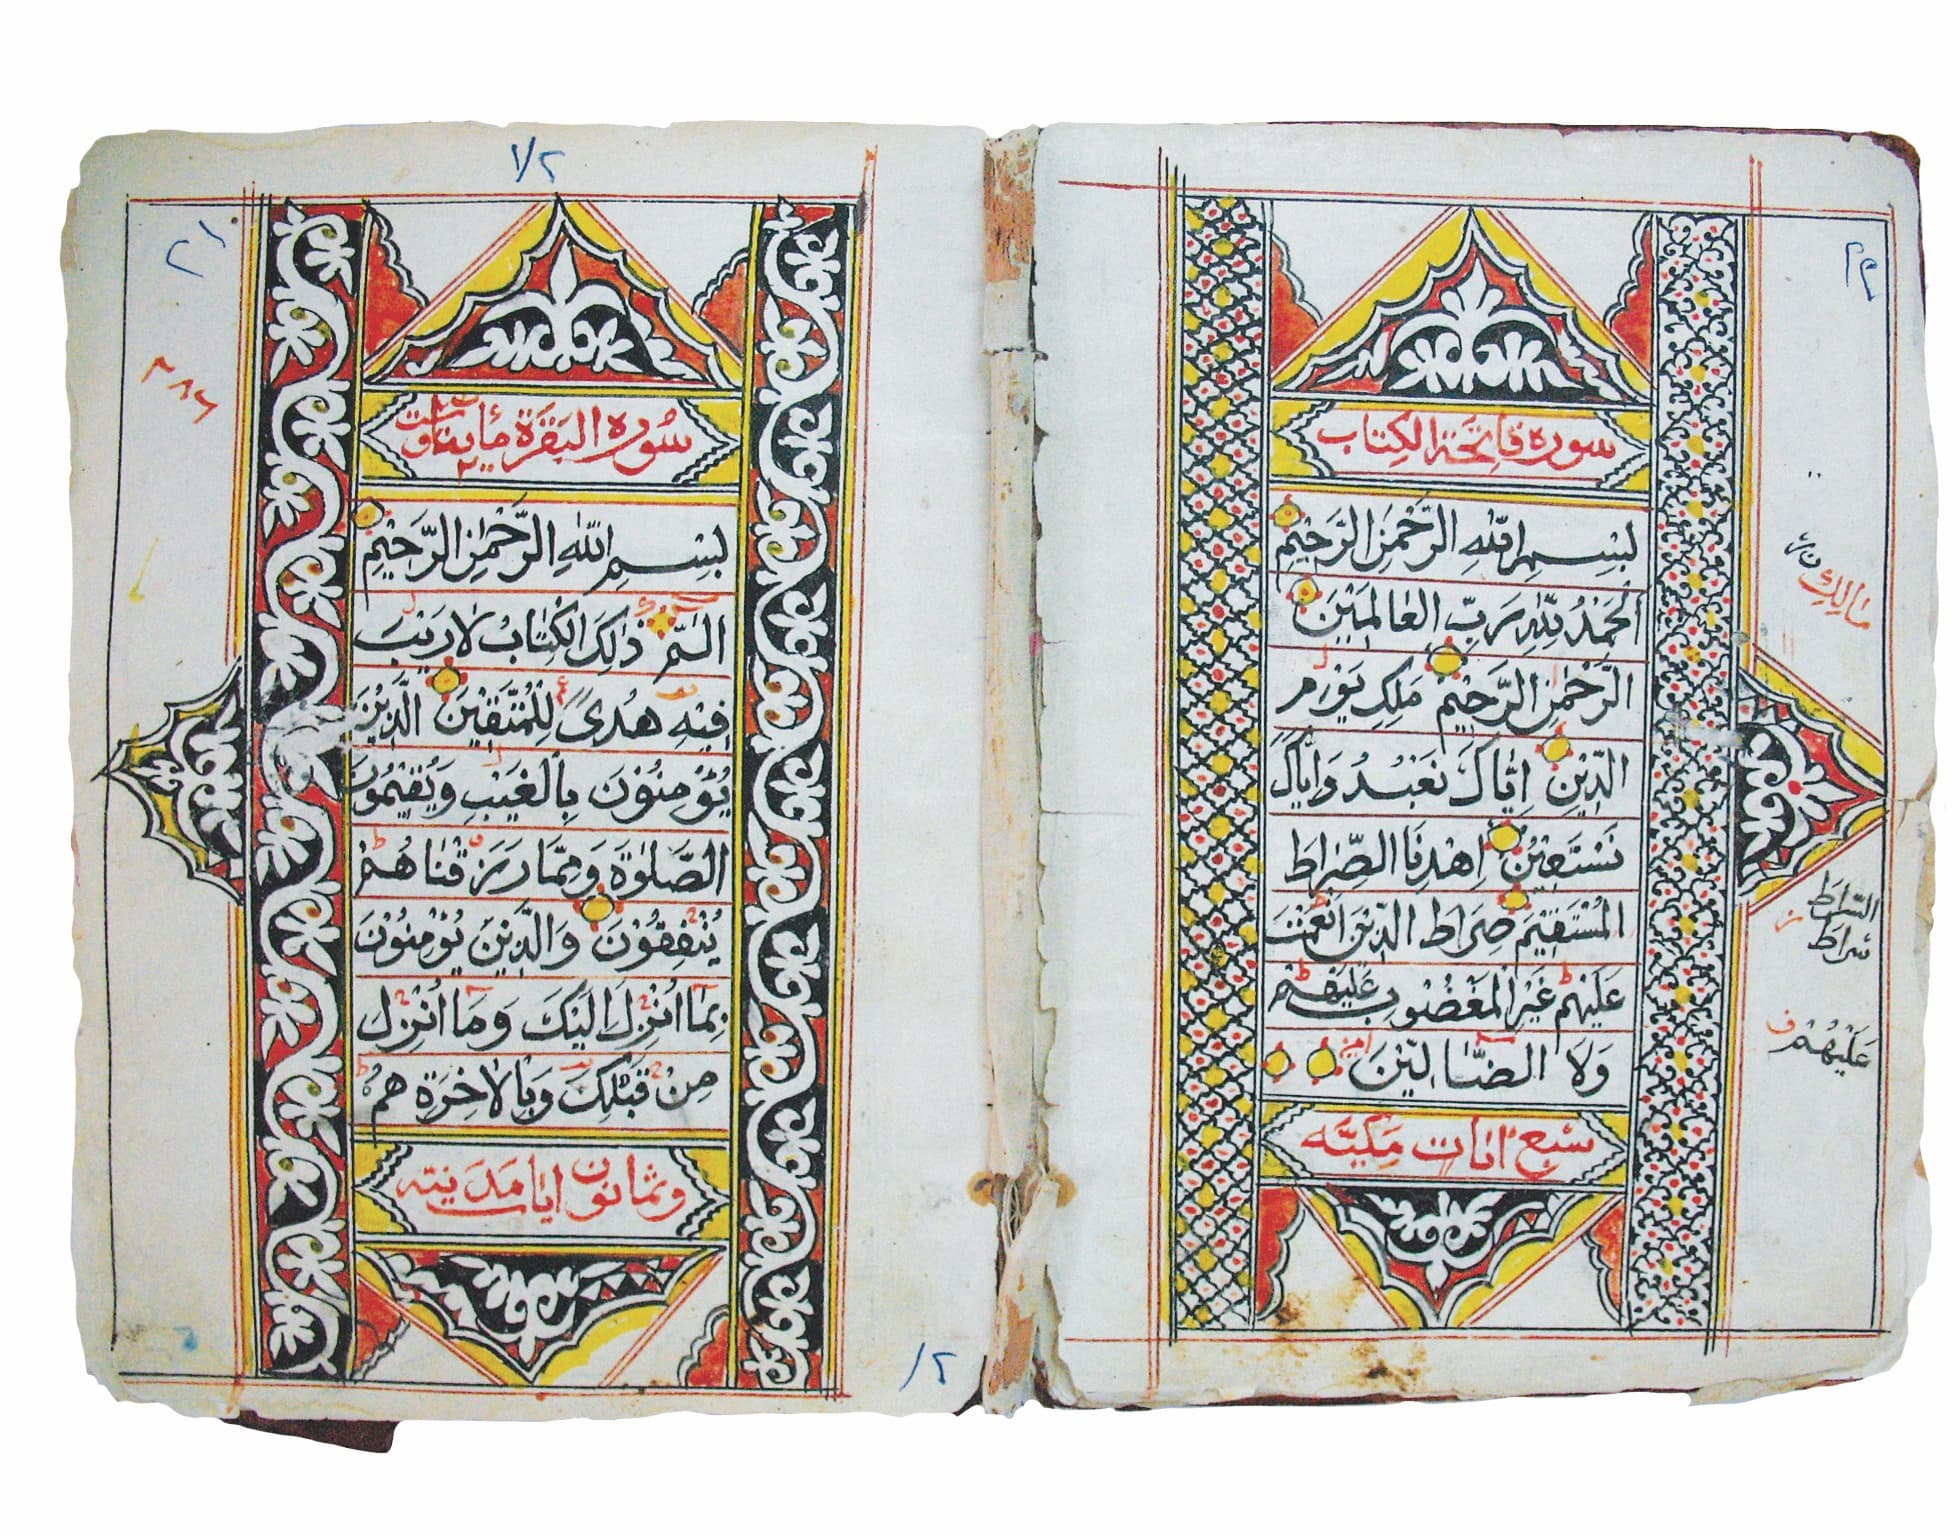 سورة فاتحة الكتاب
بِسْمِ اللهِ الرَّحْمٰنِ الرَّحِيْمِ
اَلْحَمْدُ لِلّٰهِ رَبِّ العَالَمِيْنَ
الرَّحْمٰنِ الرَّحِيْمِ مَلِكِ يَوْمِ
الدِّيْنِ اِيَّاكَ نَعْبُدُ وَاِيَّاكَ
نَسْتَعِيْنُ اِهْدِنَا الصِّرَاطَ
الْمُسْتَقِيْمَ صِرَاطَ الَّذِيْنَ اَنْعَمْتَ
عَلَيْهِمْ غَيْرِ الْمَغْضُوْبِ عَلَيْهِمْ
وَلَا الضَّآلِّيْنَ امين
سَبْعُ اٰيَات مَكِيَّه
مَالِكِ
السِّرَاطَ
سِرَاطَ
عَلَيْهُمْ ف
٢١
١/٢
٢٨٦
سُوره البَقَرَة مايتان وست
بِسْمِ اللهِ الرَّحْمٰنِ الرَّحِيْمِ
الٓمّٓ ذٰلِكَ الْكِتَابُ لَا رَيْبَ
فِيْهِ هُدًى لِلْمُتَّقِيْنَ الَّذِيْنَ
يُؤْمِنُوْنَ بِالْغَيْبِ وَيُقِيْمُوْنَ
الصَّلٰوةَ وَمِمَّا رَزَقْنَاهُمْ
يُنْفِقُوْنَ وَالَّذِيْنَ يُؤْمِنُوْنَ
بِمَا اُنْزِلَ اِلَيْكَ وَمَا اُنْزِلَ
مِنْ قَبْلِكَ وَبِالْاٰخِرَةِ هُمْ
وثمانون ايات مَدَنيته
١٢